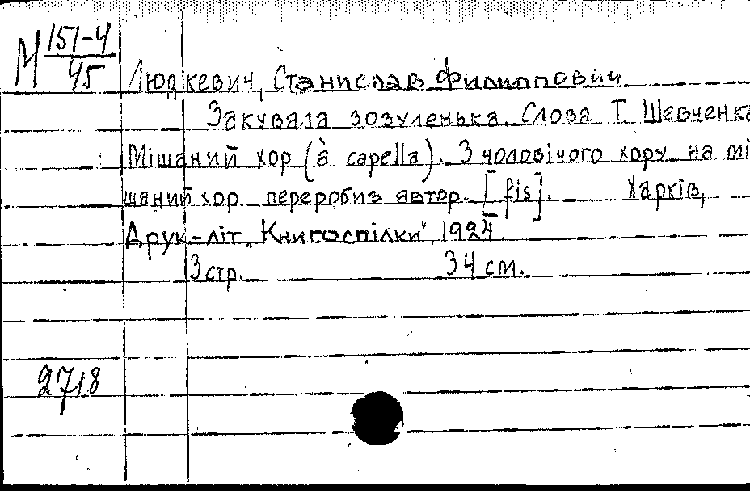 М 151-4
45
Людкевич, Станислав Филиппович
Закувала зозуленька. Слова Т. Шевченка
Мішаний хор (à capella). З чоловічого хору на мі
шаний хор переробив автор. [fis]. Харків,
Друк-літ. „Книгоспілки", 1924
3 стр. 34 см.
2718